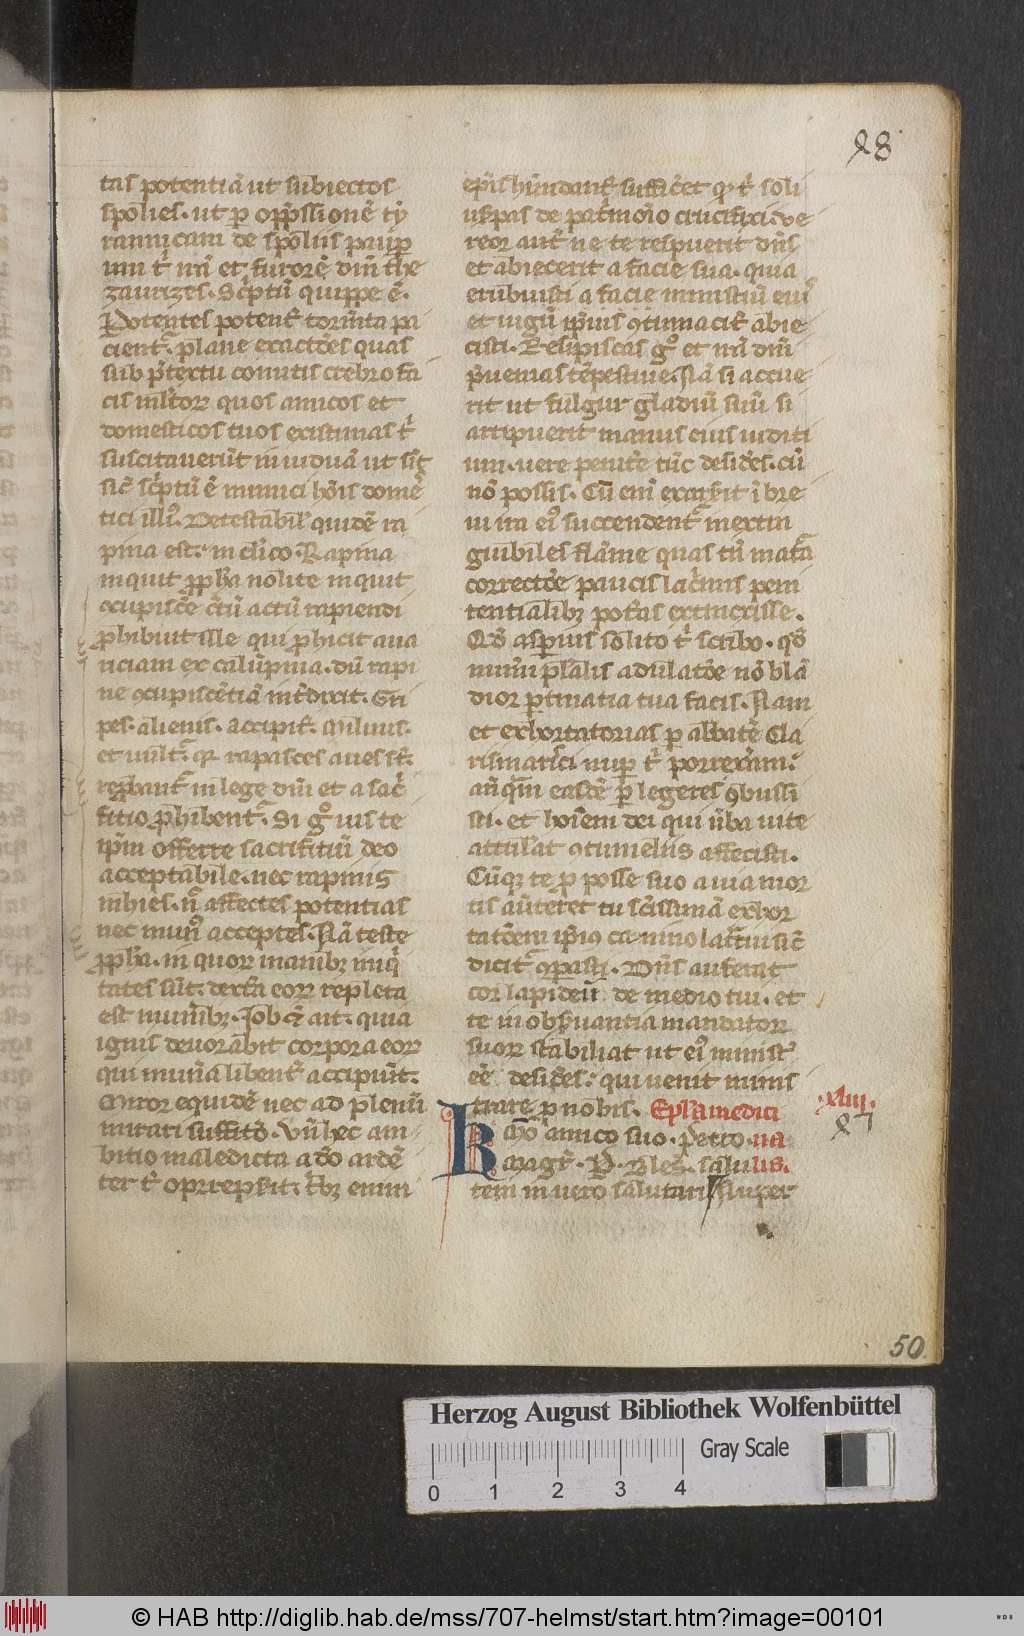 28
tas potentiā ut subiectos
spolies. ut ꝑ opp̄ssionē ty
rannicam de spoliis paup̱
um t̓ nū et furorē dm̄ the
zaurizes. Sc̓ptū quippe ē.
Potentes potent̓ tormēta pa
cient̓. plane exactōes quas
sub p̄textu comitis crebro fa
quos amicos et
domesticos tuos existimas t̓
suscitauerūt in iudiciū ut sic̄
sic̄ sc̓ptū ē inimici hōis domes̓
tici illi. Detestabil̓ quidē ra
pina est. in cl̓ico. Rapina
inquit ꝓpħa nolite inquit
ꝯcupisc̓e
ꝓhibuit ille qui ꝓhicit aua
riciam ex calūpnia. dū rapi
ne ꝯcupiscētiā int̓dixit. Gri
pes. alienis. accipit̓. miluus.
et uult̓. q̓ rapaces aues st̓.
reꝓbant̓ in lege dm̄ et a sac̓
fitio ꝓhibent̓. Si gͦ uis te
ip̄m offerre sacrifitiū deo
acceptabile. nec rapinis
inhies. n̄ affectes potentias
nec mun̓ acceptes. Nā teste
ꝓpħa. in quoꝝ manibꝫ iniq̓
tates sūt. dext̓a eoꝝ repleta
est munibꝫ. Iob & ait. quia
ignis deuorabit corpora eoꝝ
qui mun̄a libent̓ accipiūt.
Miror equidē nec ad plenū
mirari suffitō. Vn̄ hec am
bitio maledicta adō ardē
ter t̓ oprrepsit. Th̄ꝫ enim
ep̄is suffic̓et t̓ soli
usꝑpas de pat̓monio crucifixi. ve
reor aut̓ ne te respuerit dn̄s
et abiecerit a facie sua. quia
erubuisti a facie ministrū ei̓
et iugū ip̄ius ꝯtumacit̓ abie
cisti. Resipiscas gͦ et irā dn̄i
p̄uenias tēpestiue. Nā si acue
rit ut fulgur gladiū suū si
arripuerit manus eius iuditi
um. uere penit̓e tūc desid̓es. cū
nō possis. Cū enī exarsit ī bre
ui ira ei̓ succendent̓ inextin
guibiles flāme quas tn̄ mat̓a
correctōe paucis lac̓mis peni
tentialibꝫ potas extinxisse.
Qd̓ asperius solito t̓ scribo. qd̓
nimiū p̄latis adulatōe nō blā
dior ꝑtinatia tua facis. Nam
et exhortatorias ꝑ abbatē Cla
nuꝑ t̓ porrexam.
anq̓m easdē ꝑlegeres ꝯbussi
sti. et hoīem dei qui uba uite
attul̓at ꝯtumeliis affecisti.
Cūqꝫ te ꝓ posse suo a uia mor
tis au̓teret tu sc̄issimā exhor
tatōem ip̄iꝯ ca nino latratu sic̄
dicit̓ ꝯꝑasti. Dn̄s auferat
cor lapideū de medio tui. et
te in obs̓uantia mandatoꝝ
suoꝝ stabiliat ut ei̓ minist̓
eē desid̓es. qui uenit minis
trare ꝓ nobis. Epl̓a medici
·xliiij·
27
K
amico suo. Petro. na
Magr̓. P. Bles̓. salu lis.
tem in uero salutari Nuper
50
Herzog August Bibliothek Wolfenbüttel
Gray Scale
0 1 2 3 4
© HAB http://diglib.hab.de/mss/707-helmst/start.htm?image=00101